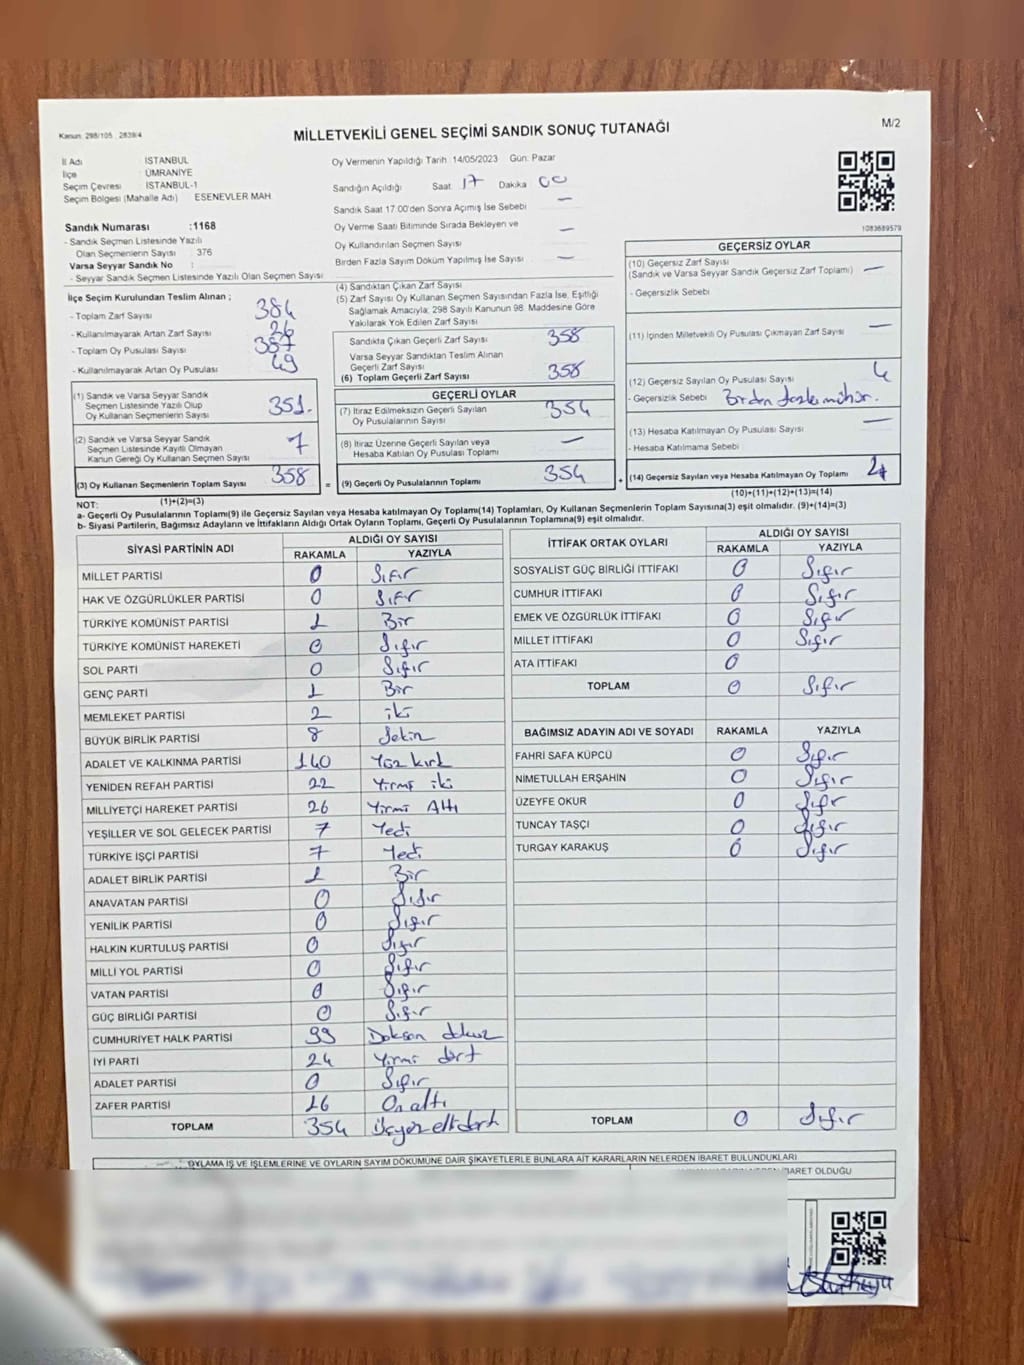 Kanun: 298/105 2839/4
MİLLETVEKİLİ GENEL SEÇİMİ SANDIK SONUÇ TUTANAĞI
M/2
İl Adı İSTANBUL
İlçe ÜMRANİYE
Seçim Çevresi İSTANBUL-1
Seçim Bölgesi (Mahalle Adı) ESENEVLER MAH
Sandık Numarası :1168
- Sandık Seçmen Listesinde Yazılı
Olan Seçmenlerin Sayısı : 376
Varsa Seyyar Sandık No :
- Seyyar Sandık Seçmen Listesinde Yazılı Olan Seçmen Sayısı :
Oy Vermenin Yapıldığı Tarih 14/05/2023 Gün: Pazar
Sandığın Açıldığı Saat 17 Dakika 00
Sandık Saat 17:00'den Sonra Açımış İse Sebebi —
Oy Verme Saati Bitiminde Sırada Bekleyen ve
Oy Kullandırılan Seçmen Sayısı —
Birden Fazla Sayım Döküm Yapılmış İse Sayısı —
1083689579
İlçe Seçim Kurulundan Teslim Alınan ;
- Toplam Zarf Sayısı 384
- Kullanılmayarak Artan Zarf Sayısı 26
- Toplam Oy Pusulası Sayısı
- Kullanılmayarak Artan Oy Pusulası 49
(1) Sandık ve Varsa Seyyar Sandık
Seçmen Listesinde Yazılı Olup
Oy Kullanan Seçmenlerin Sayısı 351
(2) Sandık ve Varsa Seyyar Sandık
Seçmen Listesinde Kayıtlı Olmayan
Kanun Gereği Oy Kullanan Seçmen Sayısı 7
(3) Oy Kullanan Seçmenlerin Toplam Sayısı 358
(4) Sandıktan Çıkan Zarf Sayısı
(5) Zarf Sayısı Oy Kullanan Seçmen Sayısından Fazla İse, Eşitliği
Sağlamak Amacıyla; 298 Sayılı Kanunun 98. Maddesine Göre
Yakılarak Yok Edilen Zarf Sayısı
Sandıkta Çıkan Geçerli Zarf Sayısı 358
Varsa Seyyar Sandıktan Teslim Alınan
Geçerli Zarf Sayısı
(6) Toplam Geçerli Zarf Sayısı 358
GEÇERLİ OYLAR
(7) İtiraz Edilmeksizin Geçerli Sayılan
Oy Pusulalarının Sayısı 354
(8) İtiraz Üzerine Geçerli Sayılan veya
Hesaba Katılan Oy Pusulası Toplamı —
= (9) Geçerli Oy Pusulalarının Toplamı 354 +
GEÇERSİZ OYLAR
(10) Geçersiz Zarf Sayısı
(Sandık ve Varsa Seyyar Sandık Geçersiz Zarf Toplamı) —
- Geçersizlik Sebebi
(11) İçinden Milletvekili Oy Pusulası Çıkmayan Zarf Sayısı —
(12) Geçersiz Sayılan Oy Pusulası Sayısı 4
- Geçersizlik Sebebi Birden fazla mühür.
(13) Hesaba Katılmayan Oy Pusulası Sayısı —
- Hesaba Katılmama Sebebi
(14) Geçersiz Sayılan veya Hesaba Katılmayan Oy Toplamı 4
NOT: (1)+(2)=(3)
(10)+(11)+(12)+(13)=(14)
a- Geçerli Oy Pusulalarının Toplamı(9) ile Geçersiz Sayılan veya Hesaba katılmayan Oy Toplamı(14) Toplamları, Oy Kullanan Seçmenlerin Toplam Sayısına(3) eşit olmalıdır. (9)+(14)=(3)
b- Siyasi Partilerin, Bağımsız Adayların ve İttifakların Aldığı Ortak Oyların Toplamı, Geçerli Oy Pusulalarının Toplamına(9) eşit olmalıdır.
SİYASİ PARTİNİN ADI ALDIĞI OY SAYISI
RAKAMLA YAZIYLA
MİLLET PARTİSİ 0 Sıfır
HAK VE ÖZGÜRLÜKLER PARTİSİ 0 Sıfır
TÜRKİYE KOMÜNİST PARTİSİ 1 Bir
TÜRKİYE KOMÜNİST HAREKETİ 0 Sıfır
SOL PARTİ 0 Sıfır
GENÇ PARTİ 1 Bir
MEMLEKET PARTİSİ 2 iki
BÜYÜK BİRLİK PARTİSİ 8 Sekiz
ADALET VE KALKINMA PARTİSİ 140 Yüz kırk
YENİDEN REFAH PARTİSİ 22 Yirmi iki
MİLLİYETÇİ HAREKET PARTİSİ 26 Yirmi Altı
YEŞİLLER VE SOL GELECEK PARTİSİ 7 Yedi
TÜRKİYE İŞÇİ PARTİSİ 7 Yedi
ADALET BİRLİK PARTİSİ 1 Bir
ANAVATAN PARTİSİ 0 Sıfır
YENİLİK PARTİSİ 0 Sıfır
HALKIN KURTULUŞ PARTİSİ 0 Sıfır
MİLLİ YOL PARTİSİ 0 Sıfır
VATAN PARTİSİ 0 Sıfır
GÜÇ BİRLİĞİ PARTİSİ 0 Sıfır
CUMHURİYET HALK PARTİSİ 99 Doksan dokuz
İYİ PARTİ 24 Yirmi dört
ADALET PARTİSİ 0 Sıfır
ZAFER PARTİSİ 16 On altı
TOPLAM 354 Üçyüz elli dört
İTTİFAK ORTAK OYLARI ALDIĞI OY SAYISI
RAKAMLA YAZIYLA
SOSYALİST GÜÇ BİRLİĞİ İTTİFAKI 0 Sıfır
CUMHUR İTTİFAKI 0 Sıfır
EMEK VE ÖZGÜRLÜK İTTİFAKI 0 Sıfır
MİLLET İTTİFAKI 0 Sıfır
ATA İTTİFAKI 0
TOPLAM 0 Sıfır
BAĞIMSIZ ADAYIN ADI VE SOYADI RAKAMLA YAZIYLA
FAHRİ SAFA KÜPCÜ 0 Sıfır
NİMETULLAH ERŞAHİN 0 Sıfır
ÜZEYFE OKUR 0 Sıfır
TUNCAY TAŞÇI 0 Sıfır
TURGAY KARAKUŞ 0 Sıfır
TOPLAM 0 Sıfır
OYLAMA İŞ VE İŞLEMLERİNE VE OYLARIN SAYIM DÖKÜMÜNE DAİR ŞİKAYETLERLE BUNLARA AİT KARARLARIN NELERDEN İBARET BULUNDUKLARI
İBARET OLDUĞU